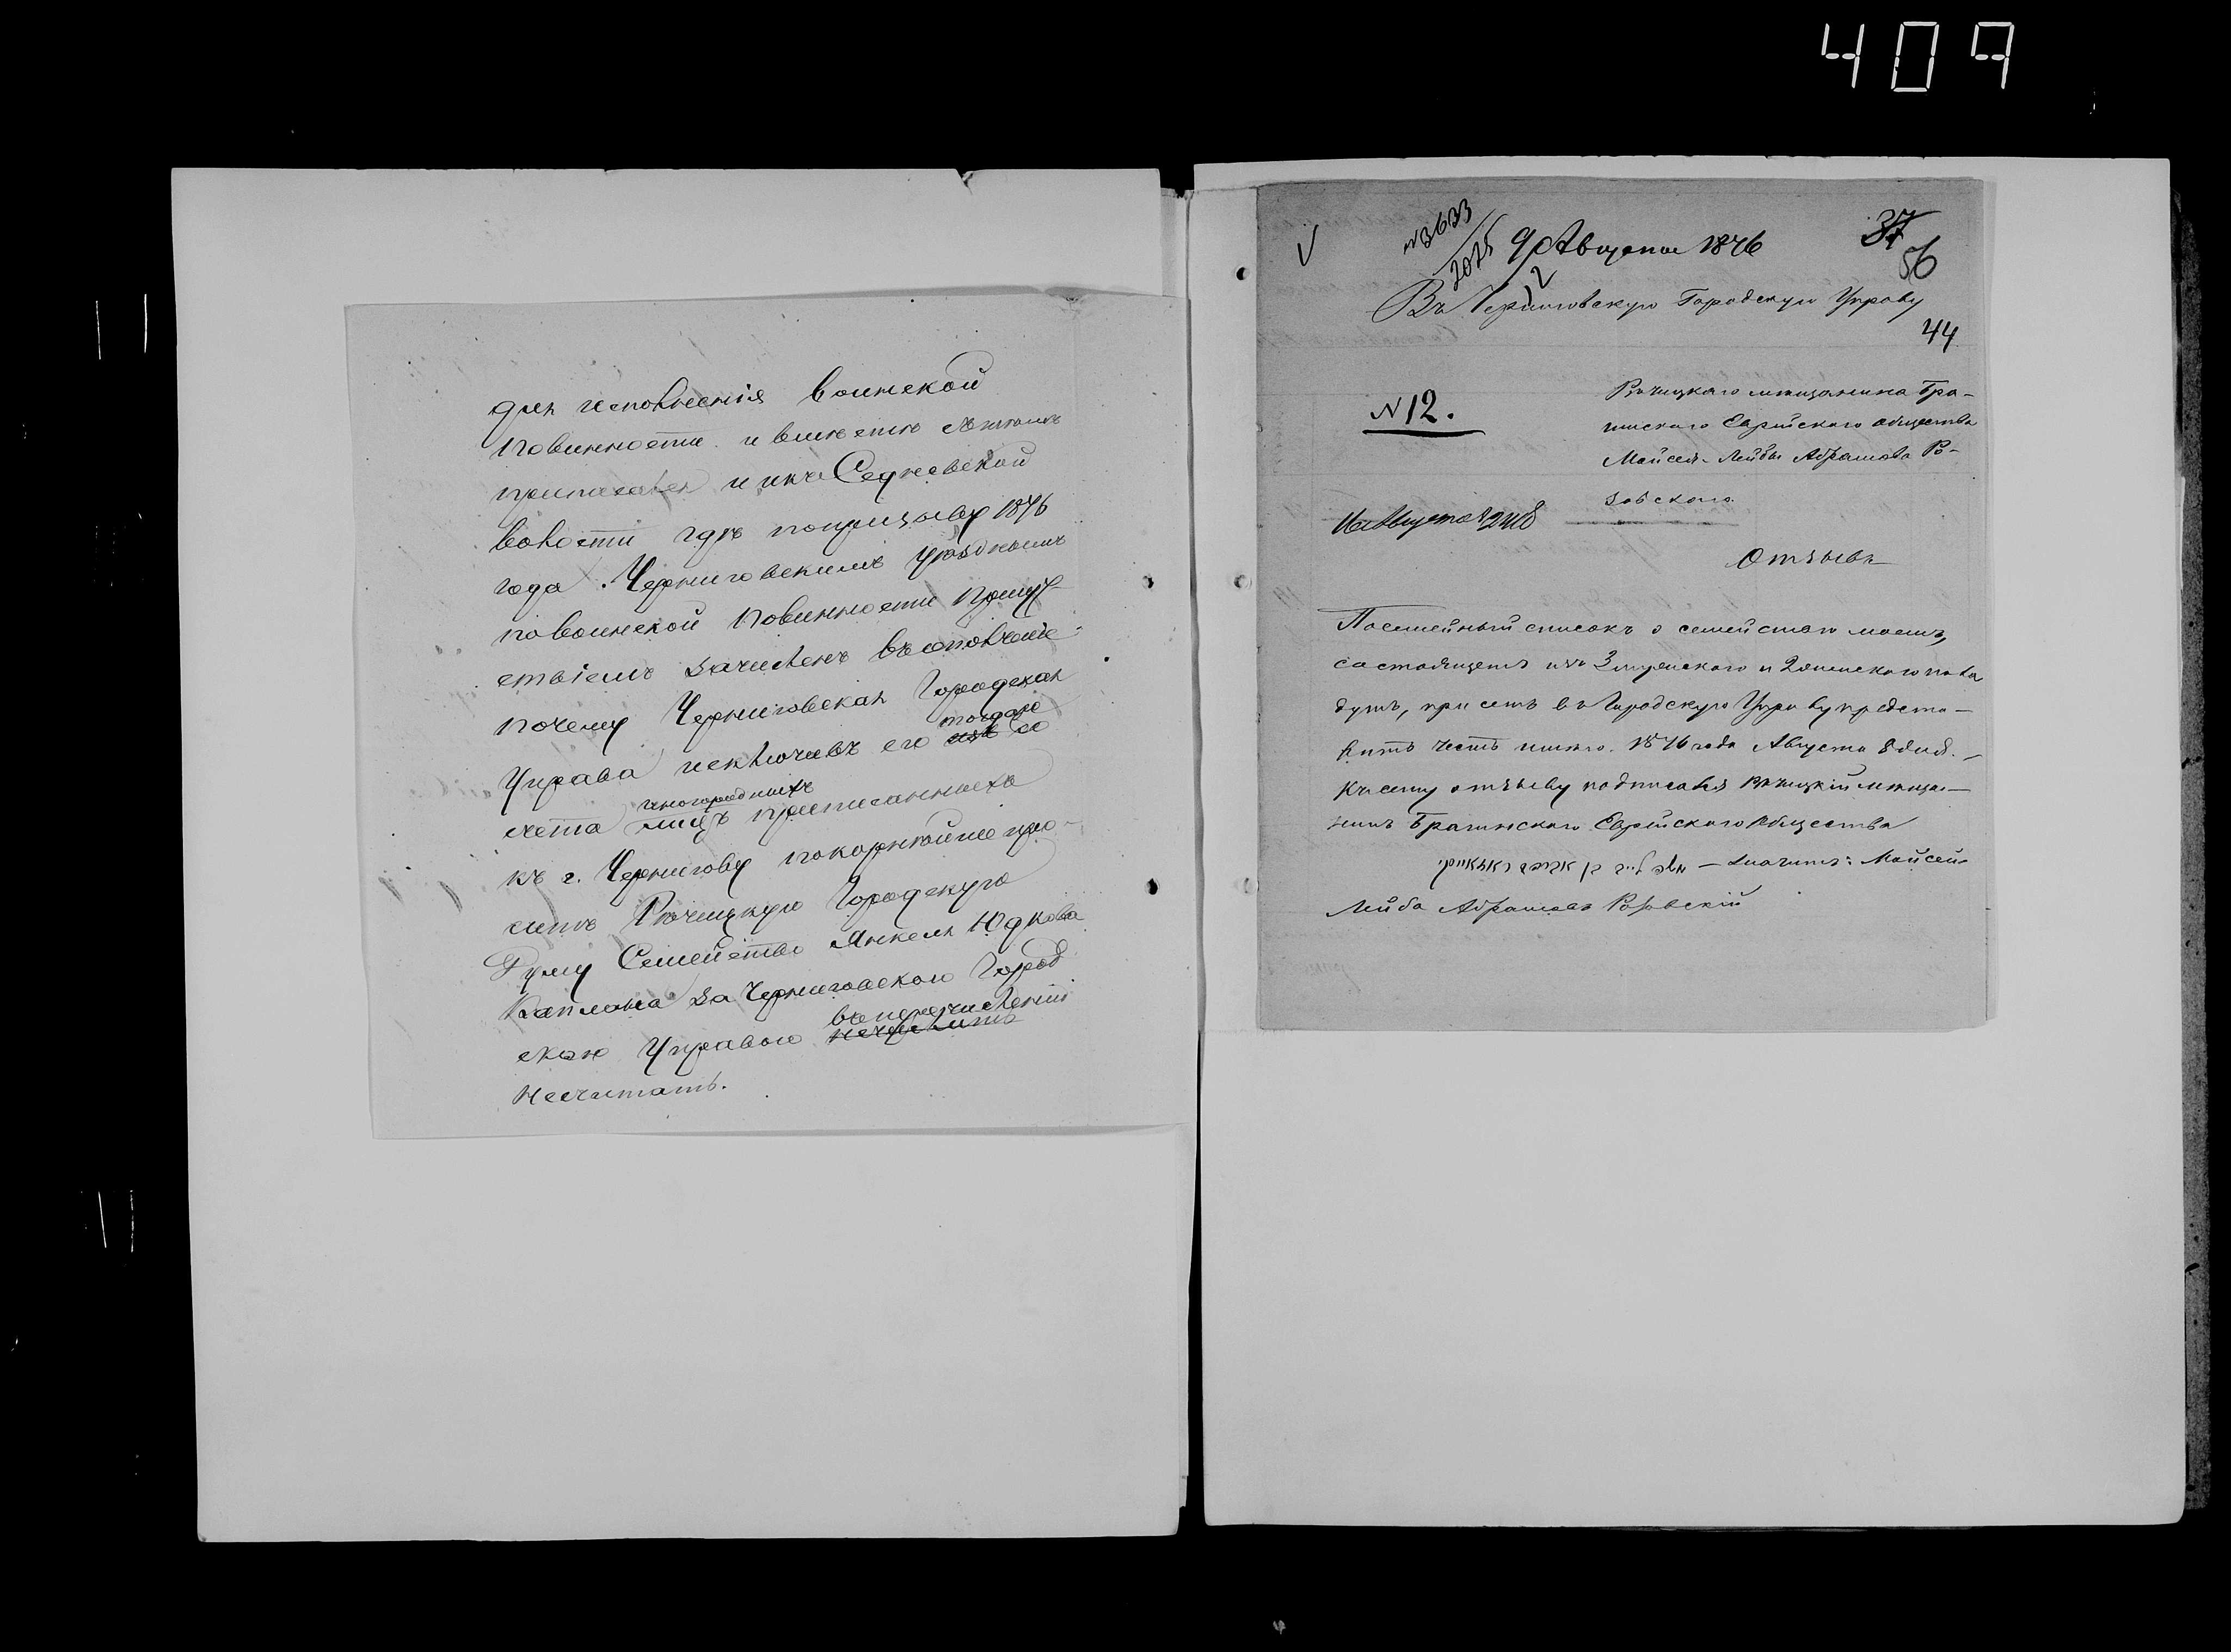 409
для исполненія воинской
повинности и вмѣстѣ съ тѣмъ
приписался и икъ Седневской
волости гдѣ по призыву 1876
года. Черниговскимъ уѣзднымъ
по воинской повинности Присут
ствіемъ зачисленъ въ ополченіе
почему Черниговская Городская
Управа исключивъ его со
счета иногородныхъ приписанныхъ
къ г. Чернигову покорнѣйше про-
ситъ Рѣчицкую Городскую
Думу Семейство Янкеля Юдкова
Каплана за Черниговскою Город
скою Управою въ перечисленіи
несчитать.
37
56
№ 3633
2025
9 Августа 1876
Въ Черниговскую Городскую Управу
44
№ 12.
Рѣчицкаго мѣщанина Бра-
гинскаго Еврейскаго общества
Мойсея-Лейбы Абрамова Ро-
зовскаго
Отзывъ
Посемейный списокъ о семействѣ моемъ,
состоящемъ изъ 3 мужескаго и 2 женскаго пола
душъ, при семъ въ Городскую Управу предста-
вить честь имѣю. 1876 года Августа 8 дня. —
Къ сему отзыву подписался Рѣчицкій мѣща-
нинъ Брагинскаго Еврейскаго Общества
— значитъ: Мойсей
Лейба Абрамовъ Розовскій